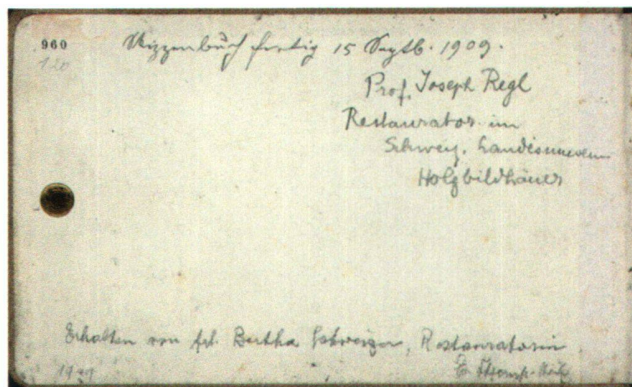 960
120
Skizzenbuch fertig 15 Septb. 1909.
Prof. Joseph Regl
Restaurator im
Schweiz. Landesmuseum
Holzbildhauer
Erhalten von frl. Bertha Schweizer, Restauratorin
E.